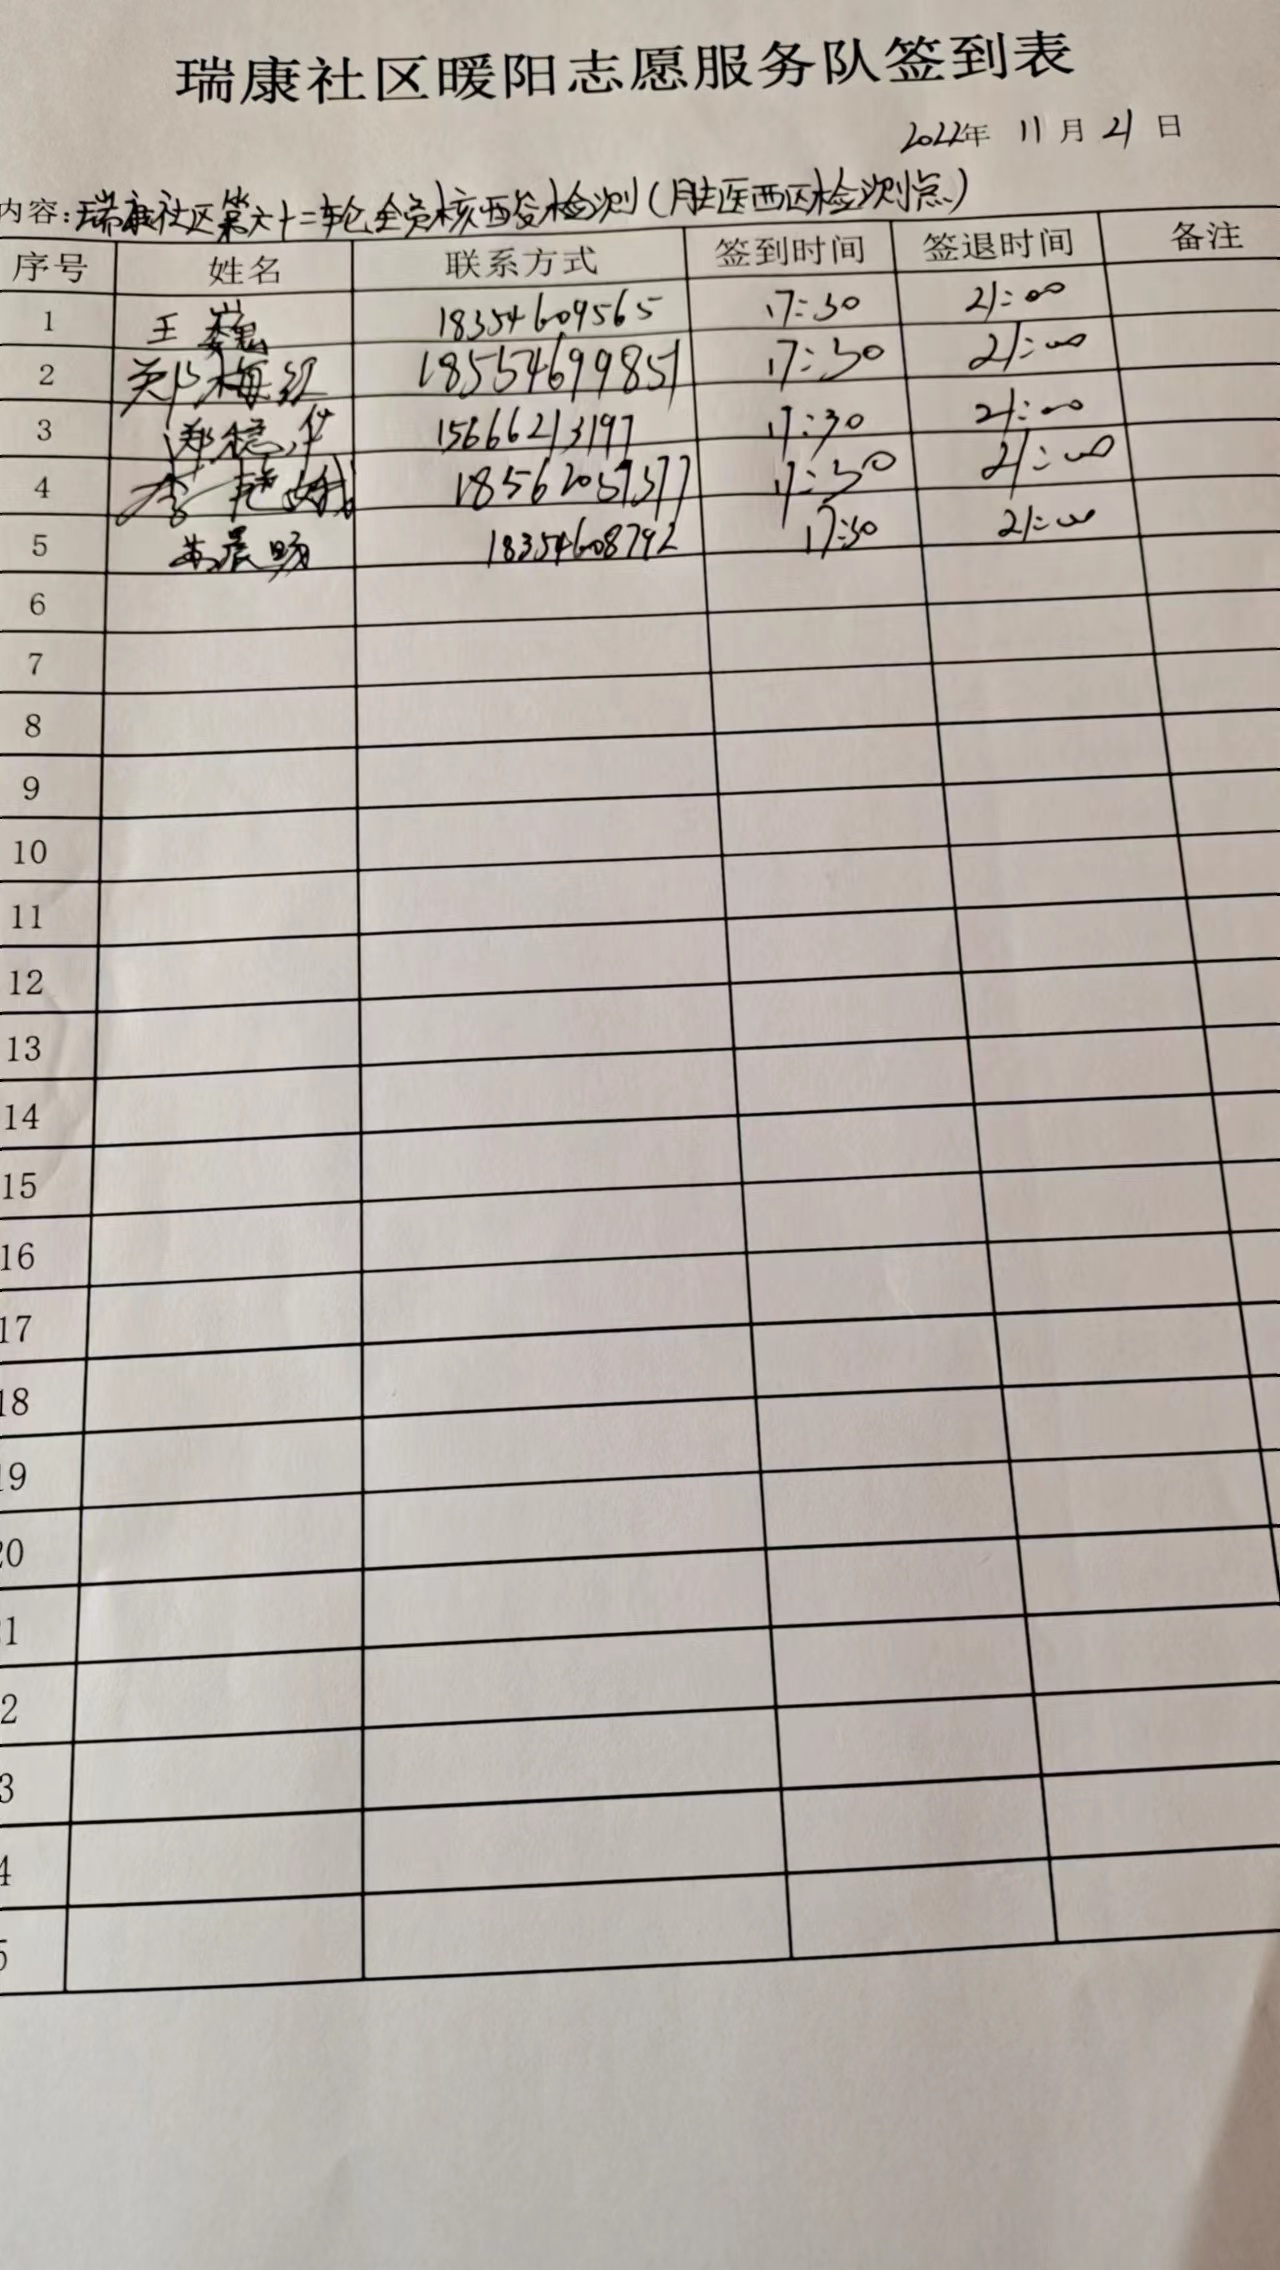 瑞康社区暖阳志愿服务队签到表
2022年 11月21日
内容:瑞康社区第六十二轮全员核酸检测(胜医西区检测点)
序号 姓名 联系方式 签到时间 签退时间 备注
1 王巍 18354609565 17:30 21:00
2 郑梅红 18554699851 17:30 21:00
3 15666213197 17:30 21:00
4 李艳娥 18562059377 17:30 21:00
5 18354608792 17:30 21:00
6
7
8
9
10
11
12
13
14
15
16
17
18
19
20
1
2
3
4
5